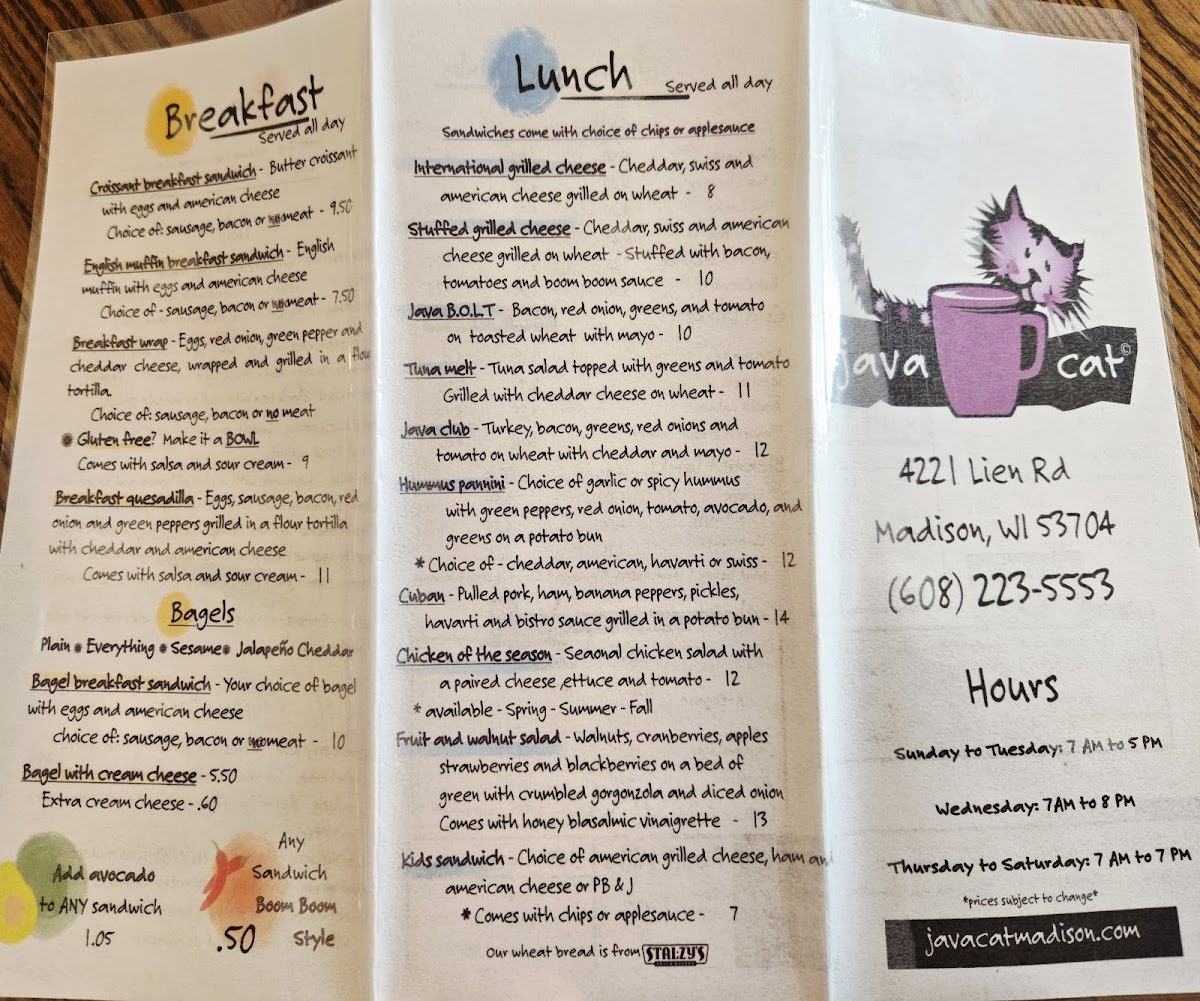 Breakfast
Served all day
Croissant breakfast sandwich - Butter croissant
with eggs and american cheese
Choice of: sausage, bacon or no meat - 9.50
English muffin breakfast sandwich - English
muffin with eggs and american cheese
Choice of - sausage, bacon or no meat - 7.50
Breakfast wrap - Eggs, red onion, green pepper and
cheddar cheese, wrapped and grilled in a flour
tortilla.
Choice of: sausage, bacon or no meat
* Gluten free? Make it a BOWL
Comes with salsa and sour cream - 9
Breakfast quesadilla - Eggs, sausage, bacon, red
onion and green peppers grilled in a flour tortilla
with cheddar and american cheese
Comes with salsa and sour cream - 11
Bagels
Plain * Everything * Sesame * Jalapeño Cheddar
Bagel breakfast sandwich - Your choice of bagel
with eggs and american cheese
choice of: sausage, bacon or no meat - 10
Bagel with cream cheese - 5.50
Extra cream cheese - .60
Add avocado
to ANY sandwich
1.05
Any
Sandwich
Boom Boom
.50 Style
Lunch
Served all day
Sandwiches come with choice of chips or applesauce
International grilled cheese - Cheddar, swiss and
american cheese grilled on wheat - 8
Stuffed grilled cheese - Cheddar, swiss and american
cheese grilled on wheat - Stuffed with bacon,
tomatoes and boom boom sauce - 10
Java B.O.L.T - Bacon, red onion, greens, and tomato
on toasted wheat with mayo - 10
Tuna melt - Tuna salad topped with greens and tomato
Grilled with cheddar cheese on wheat - 11
Java club - Turkey, bacon, greens, red onions and
tomato on wheat with cheddar and mayo - 12
Hummus pannini - Choice of garlic or spicy hummus
with green peppers, red onion, tomato, avocado, and
greens on a potato bun
* Choice of - cheddar, american, havarti or swiss - 12
Cuban - Pulled pork, ham, banana peppers, pickles,
havarti and bistro sauce grilled in a potato bun - 14
Chicken of the season - Seaonal chicken salad with
a paired cheese ,ettuce and tomato - 12
* available - Spring - Summer - Fall
Fruit and walnut salad - Walnuts, cranberries, apples
strawberries and blackberries on a bed of
green with crumbled gorgonzola and diced onion
Comes with honey blasalmic vinaigrette - 13
Kids sandwich - Choice of american grilled cheese, ham and
american cheese or PB & J
* Comes with chips or applesauce - 7
Our wheat bread is from STALZY'S
java cat©
4221 Lien Rd
Madison, WI 53704
(608) 223-5553
Hours
Sunday to Tuesday: 7 AM to 5 PM
Wednesday: 7AM to 8 PM
Thursday to Saturday: 7 AM to 7 PM
*prices subject to change*
javacatmadison.com